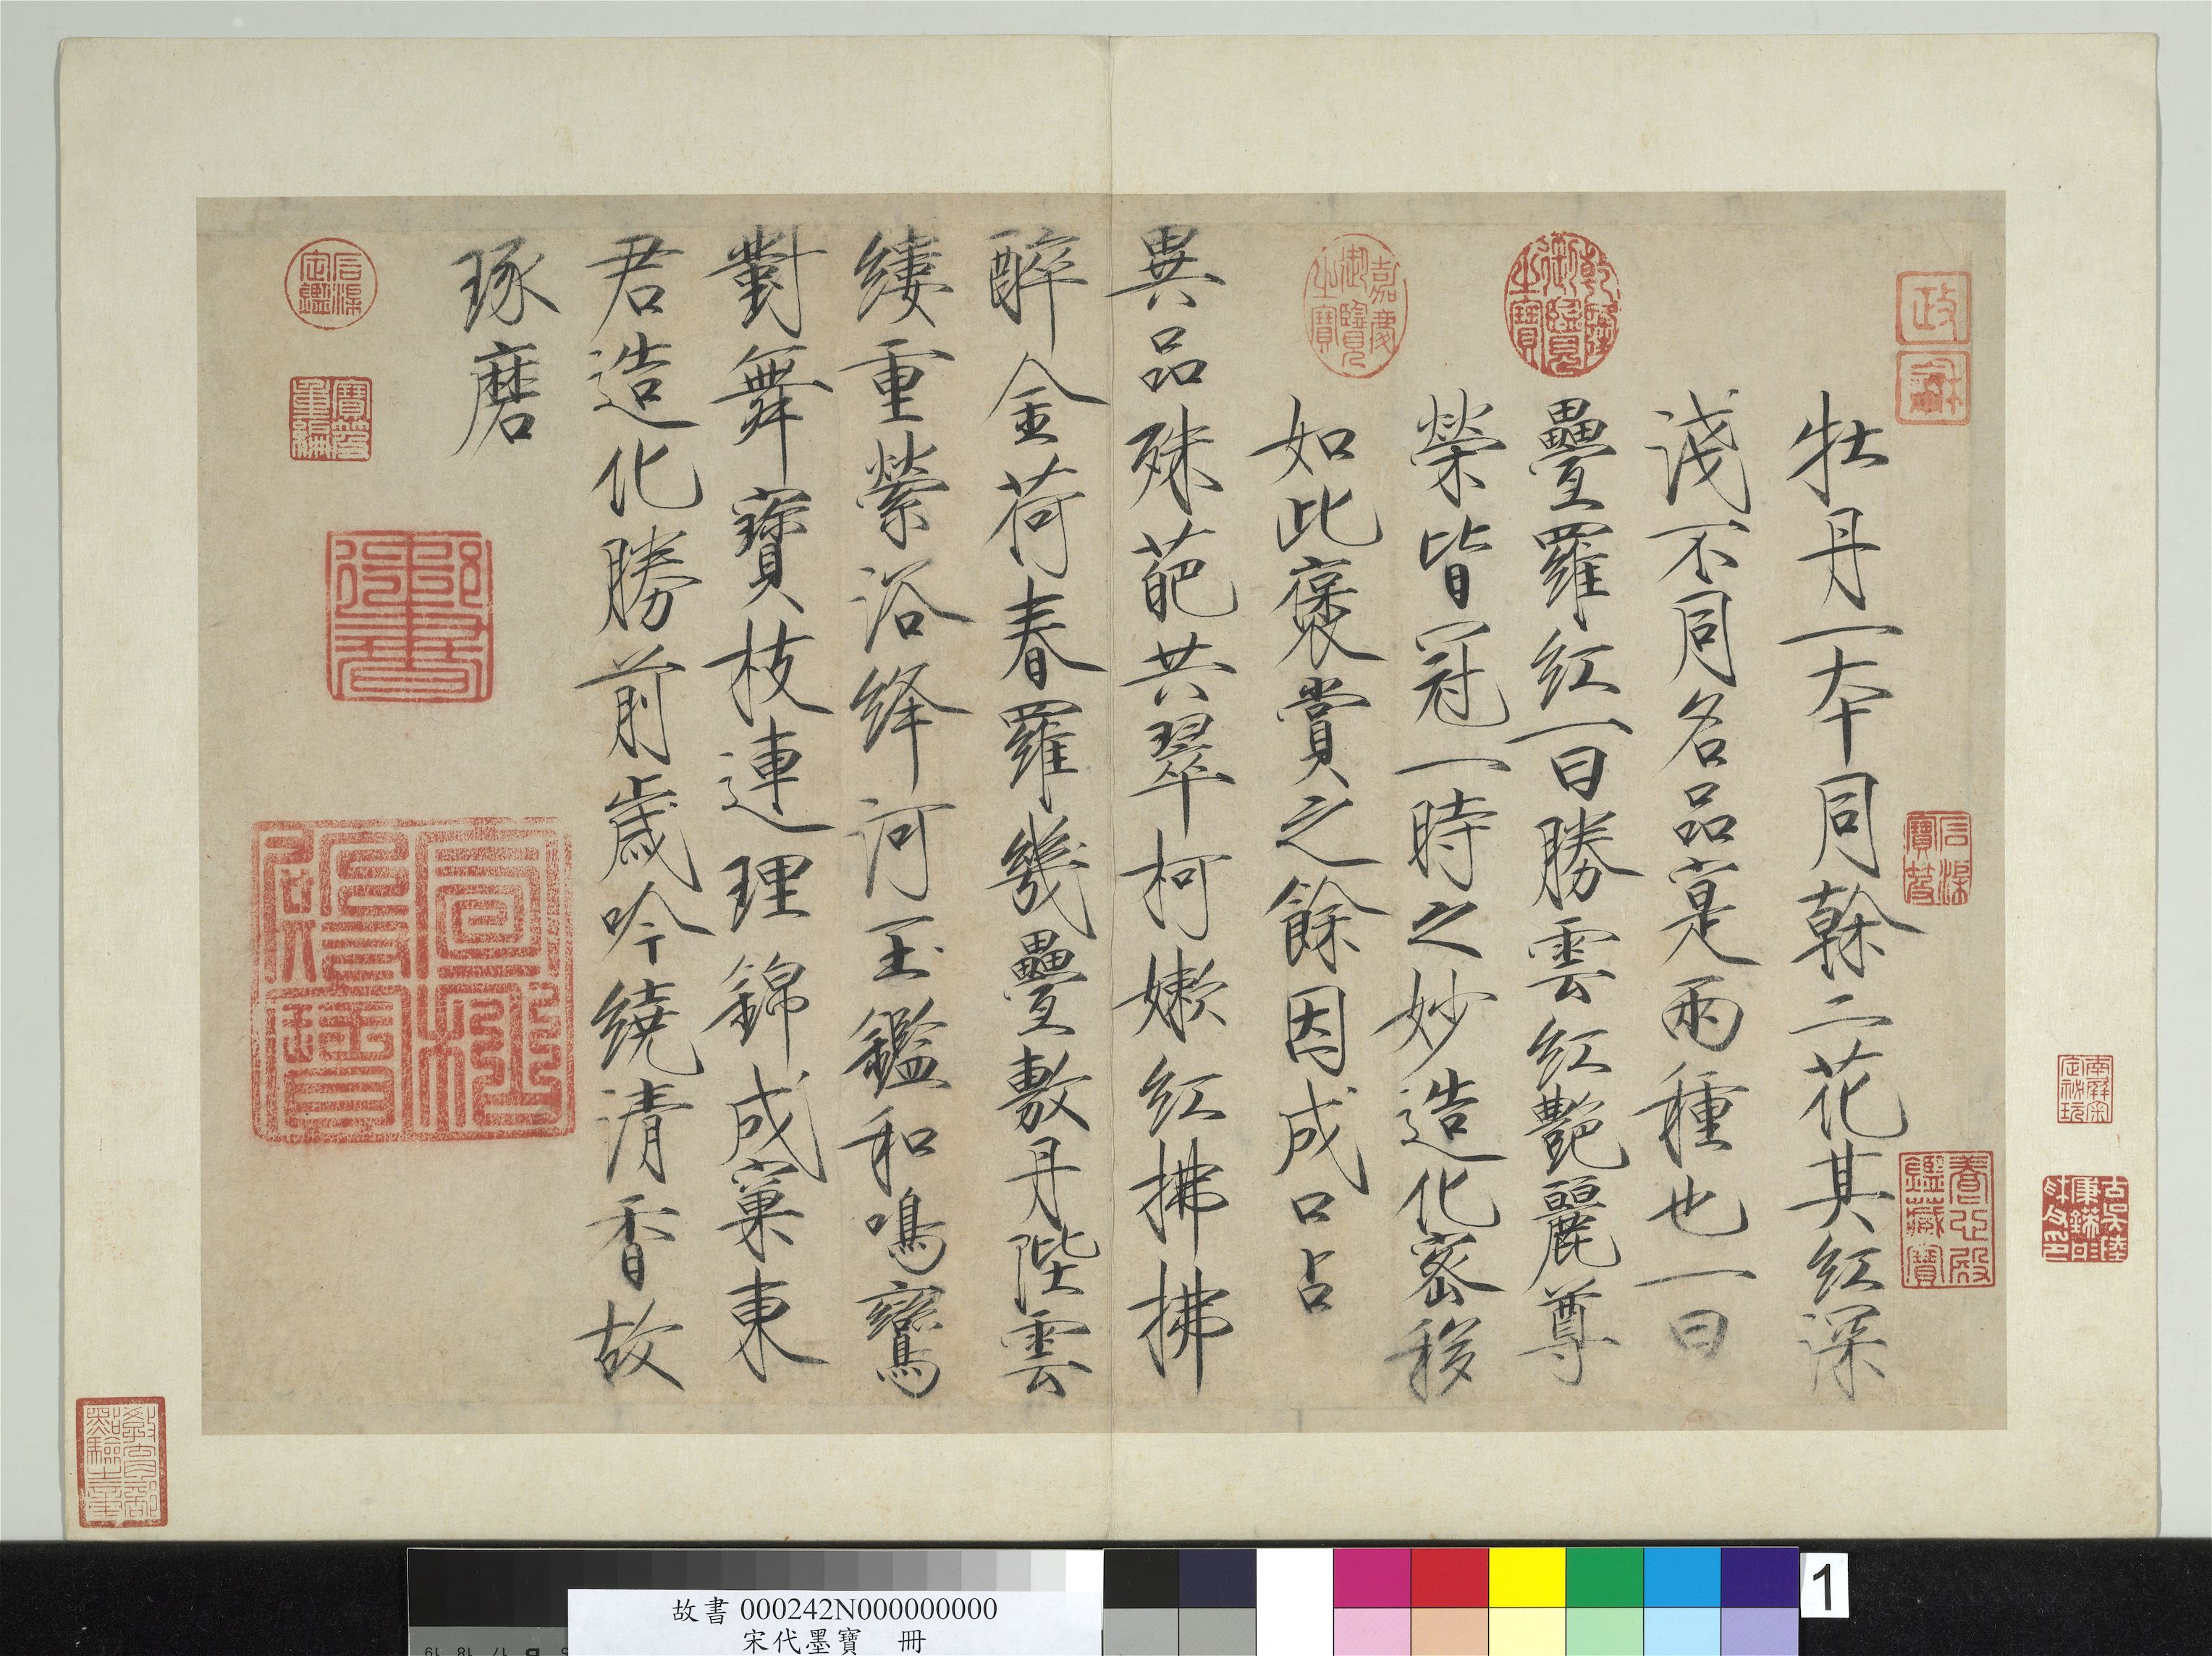 牡丹一本同榦二花其红深
淺不同名品寔兩種也一曰
疊羅红一曰勝雲红艶麗尊
榮皆冠一時之妙造化密移
如此褒賞之餘因成口占
異品殊葩共翠柯嫩红拂拂
醉金荷春羅幾疊敷丹陛雲
縷重縈浴绛河玉鑑和鳴鸞
對舞寶枝連理錦成窠東
君造化勝前歲吟繞清香故
琢磨
政
龢
乾隆御覽之寶
嘉慶御覽之寶
石渠寶笈
養心殿鑑藏寶
石渠定鑑
寶笈重編
宣統御覽之寶
教育部點驗之章
1
故書 000242N000000000
宋代墨寶 冊